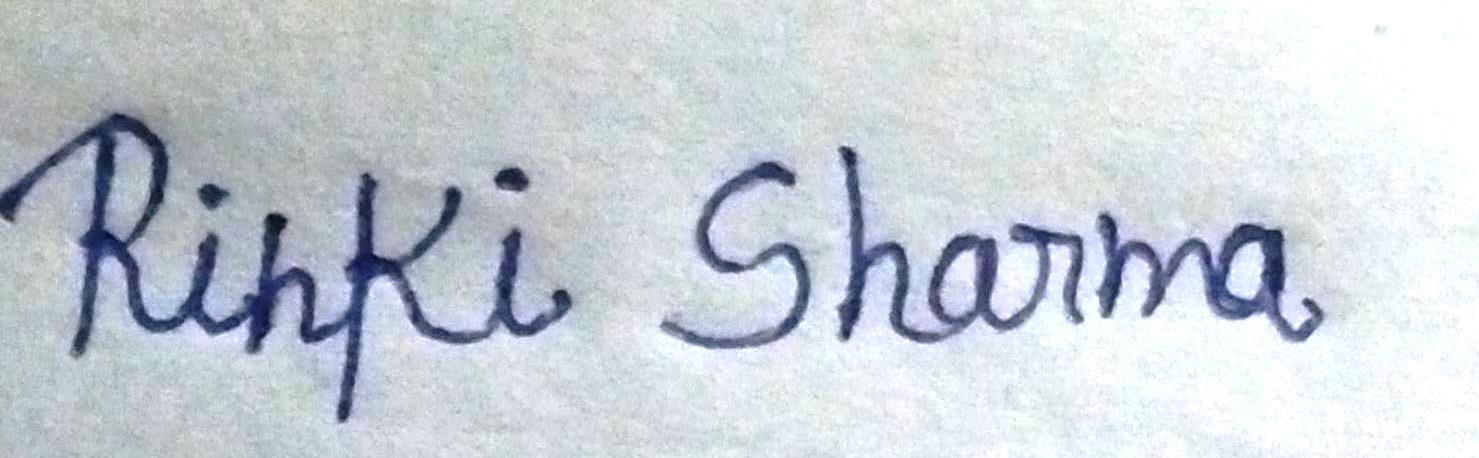 Rinki Sharma